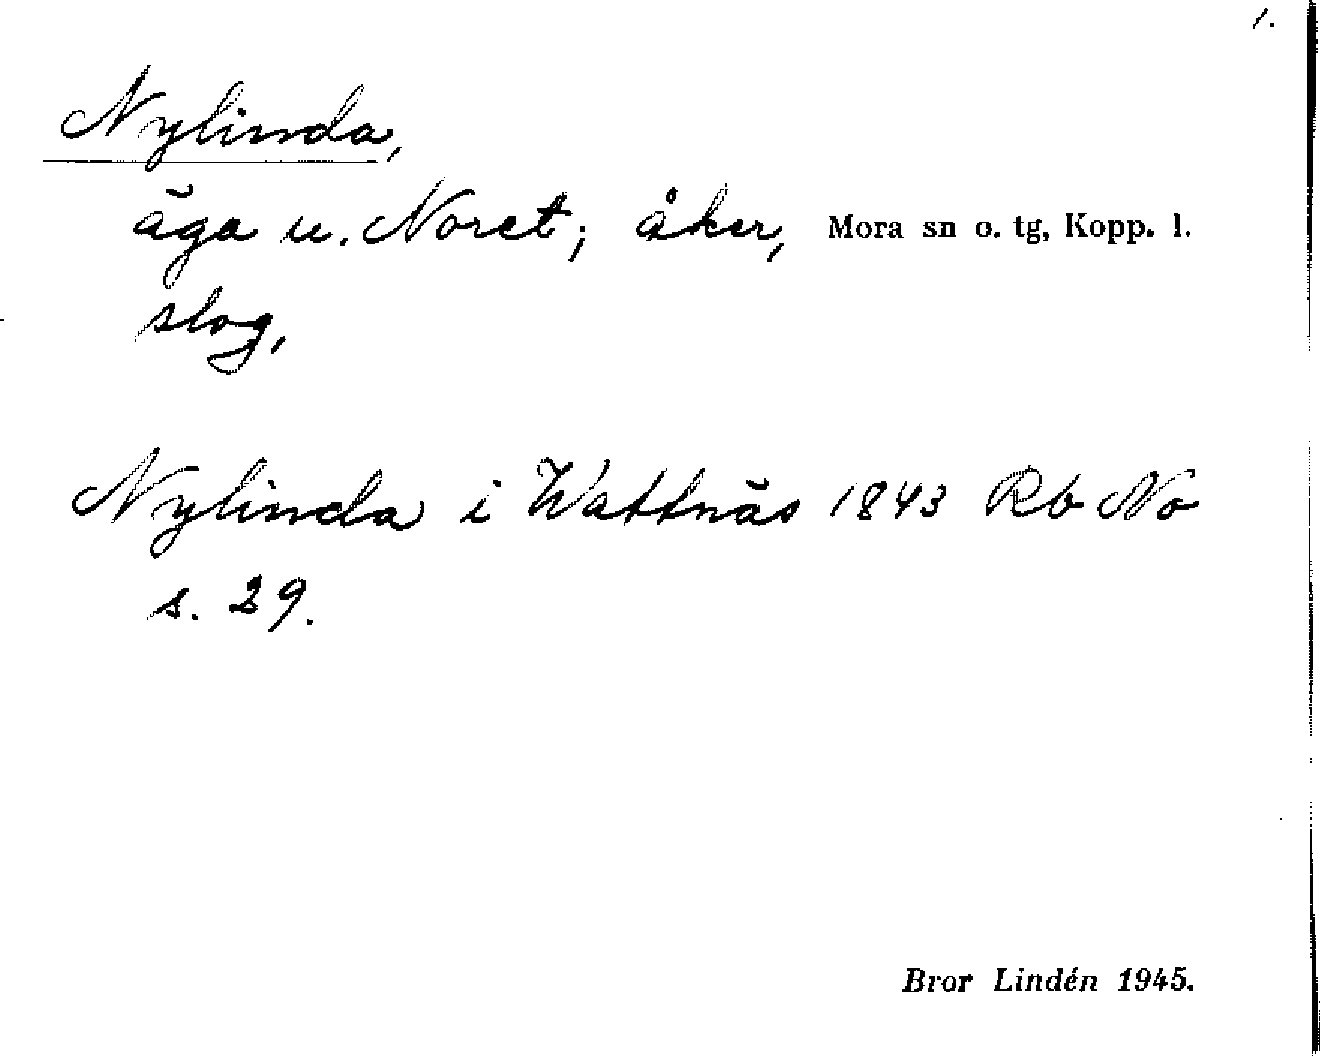 1.
Nylinda,
äga u. Noret; åker, Mora sn o. tg, Kopp. l.
slog,
Nylinda i Wattnäs 1843 Rb No
s. 29.
Bror Lindén 1945.